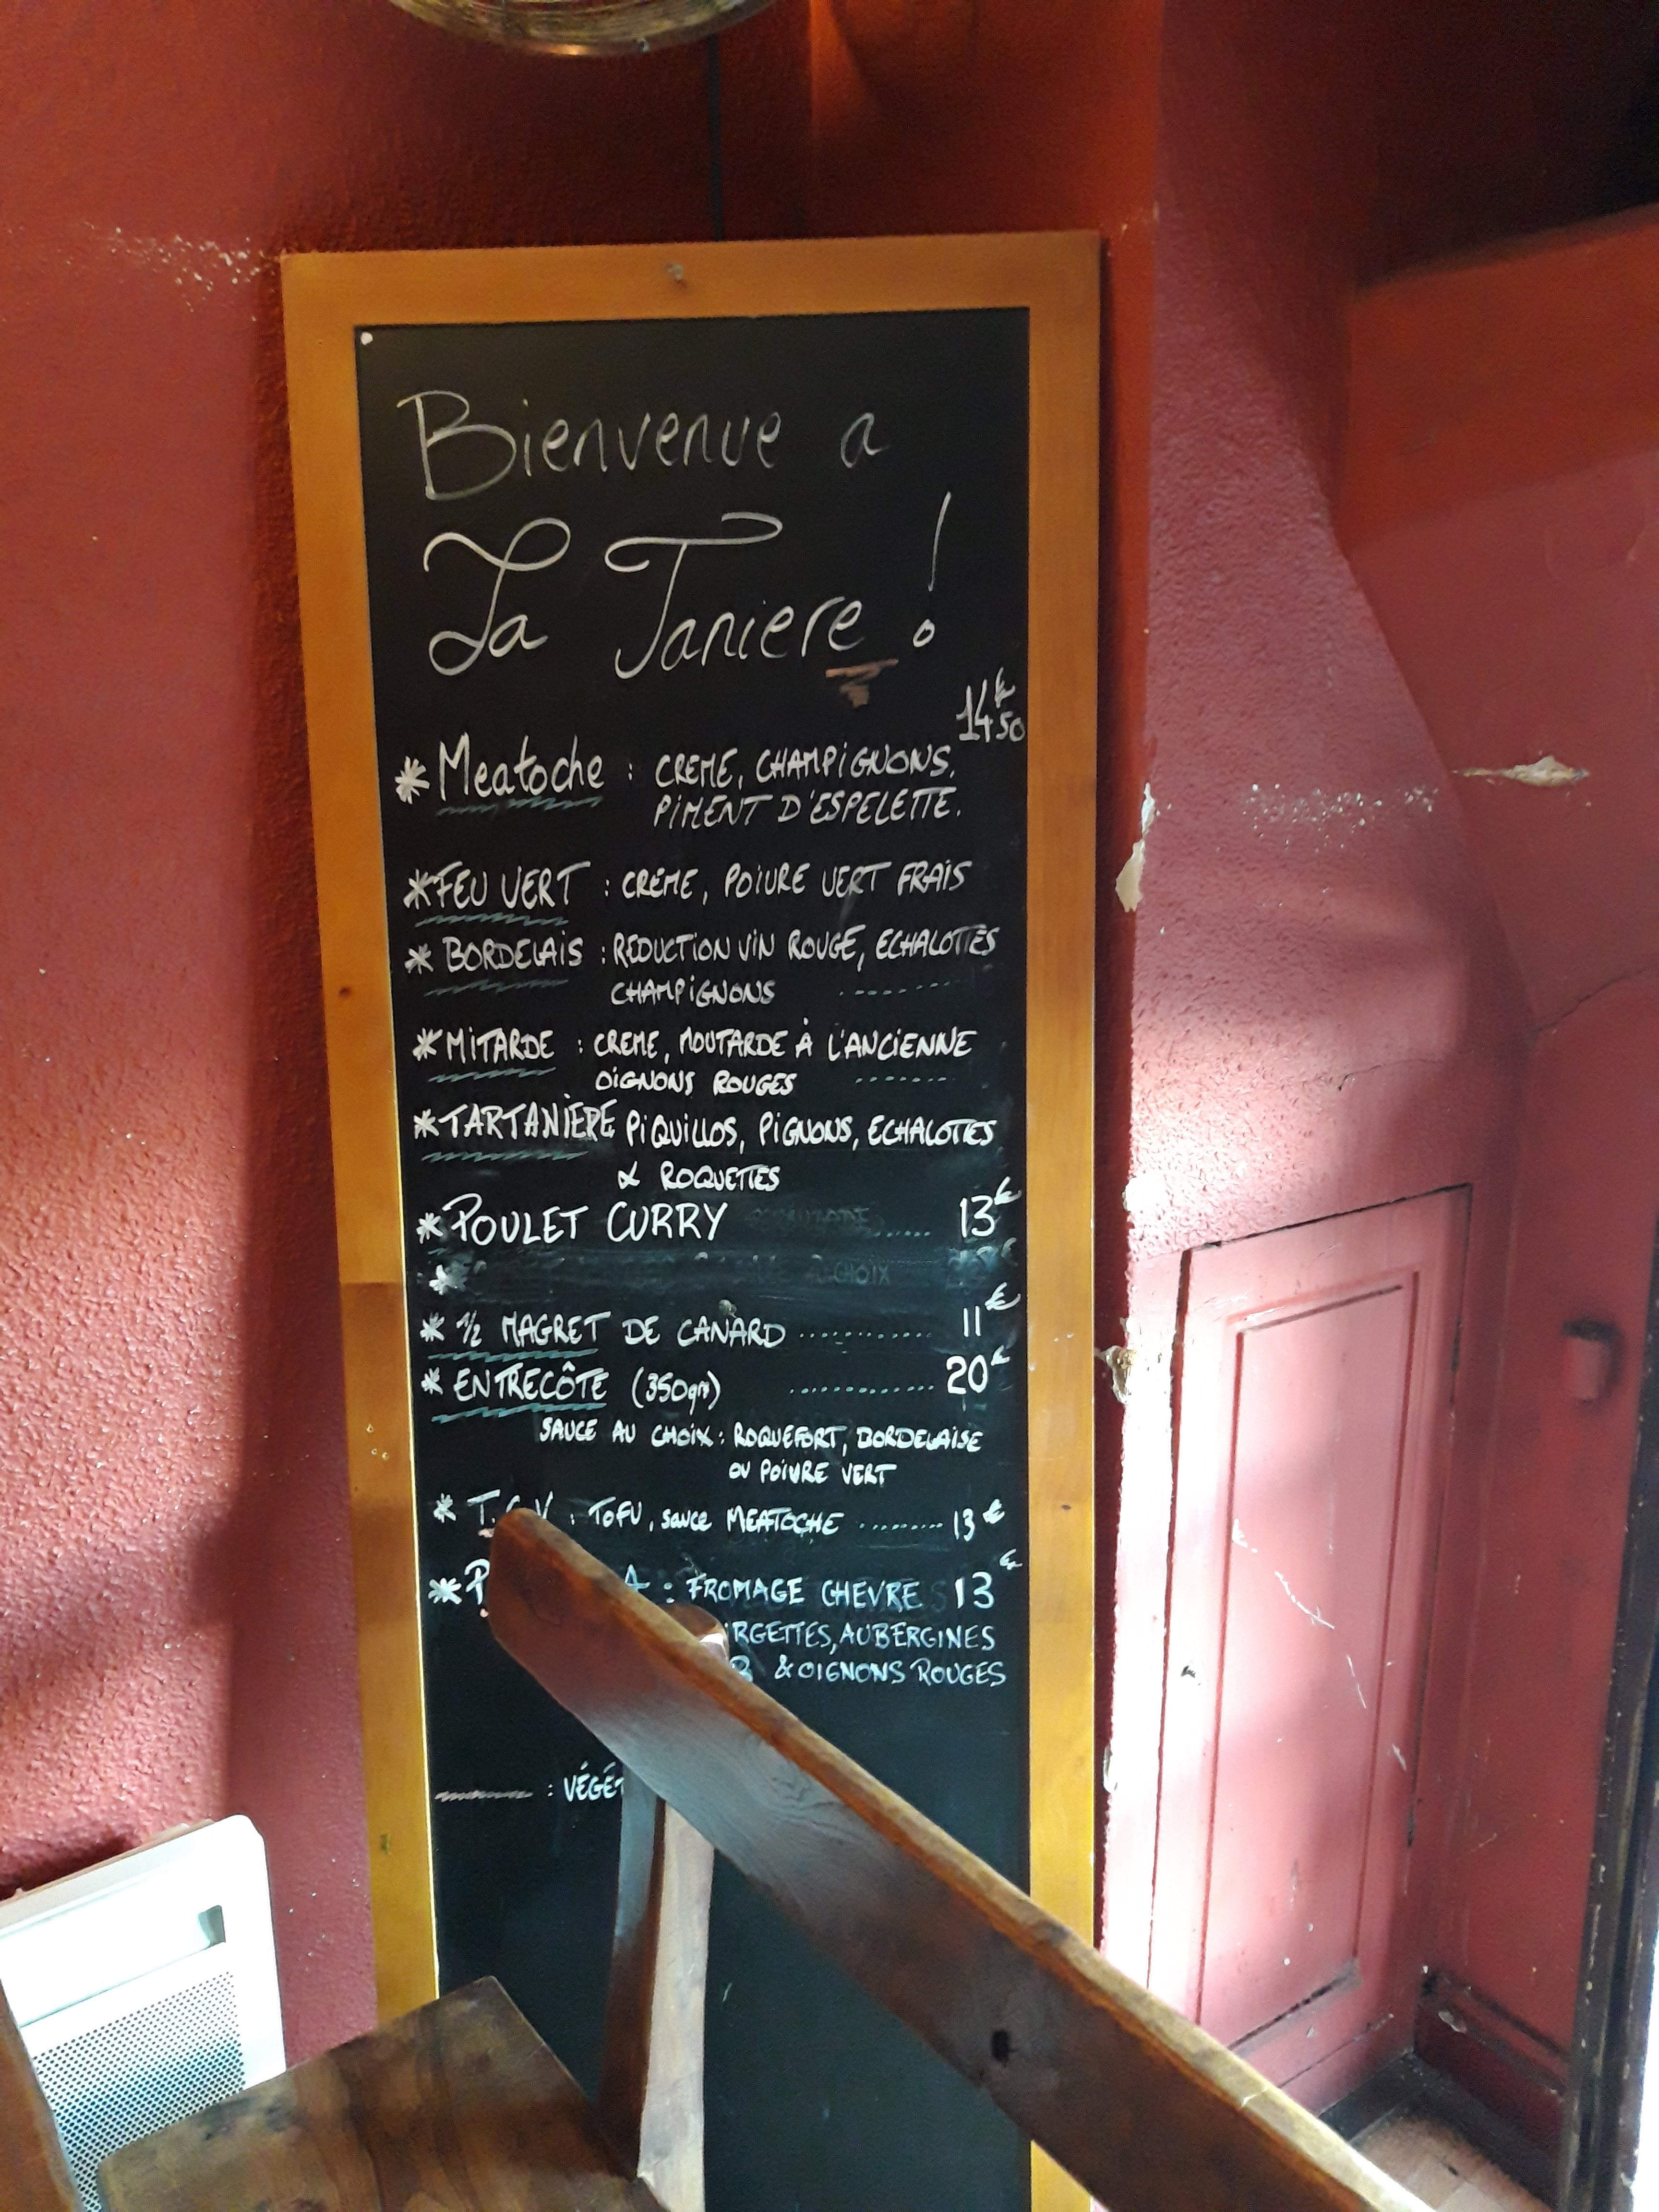 Bienvenue a
La Taniere !
14€50
* Meatoche : CREME, CHAMPIGNONS,
PIMENT D'ESPELETTE.
* FEU VERT : CREME, POIVRE VERT FRAIS
* BORDELAIS : REDUCTION VIN ROUGE, ECHALOTTES
CHAMPIGNONS ..........
* MITARDE : CREME, MOUTARDE À L'ANCIENNE
OIGNONS ROUGES ..........
* TARTANIÈRE PIQUILLOS, PIGNONS, ECHALOTTES
& ROQUETTES
* POULET CURRY ...... 13€
* CHOIX
* 1/2 MAGRET DE CANARD ............ 11€
* ENTRECÔTE (350gr) ............ 20€
SAUCE AU CHOIX : ROQUEFORT, BORDELAISE
OU POIVRE VERT
* : TOFU, sauce MEATOCHE ......... 13€
* : FROMAGE CHEVRE 13€
AUBERGINES
& OIGNONS ROUGES
: